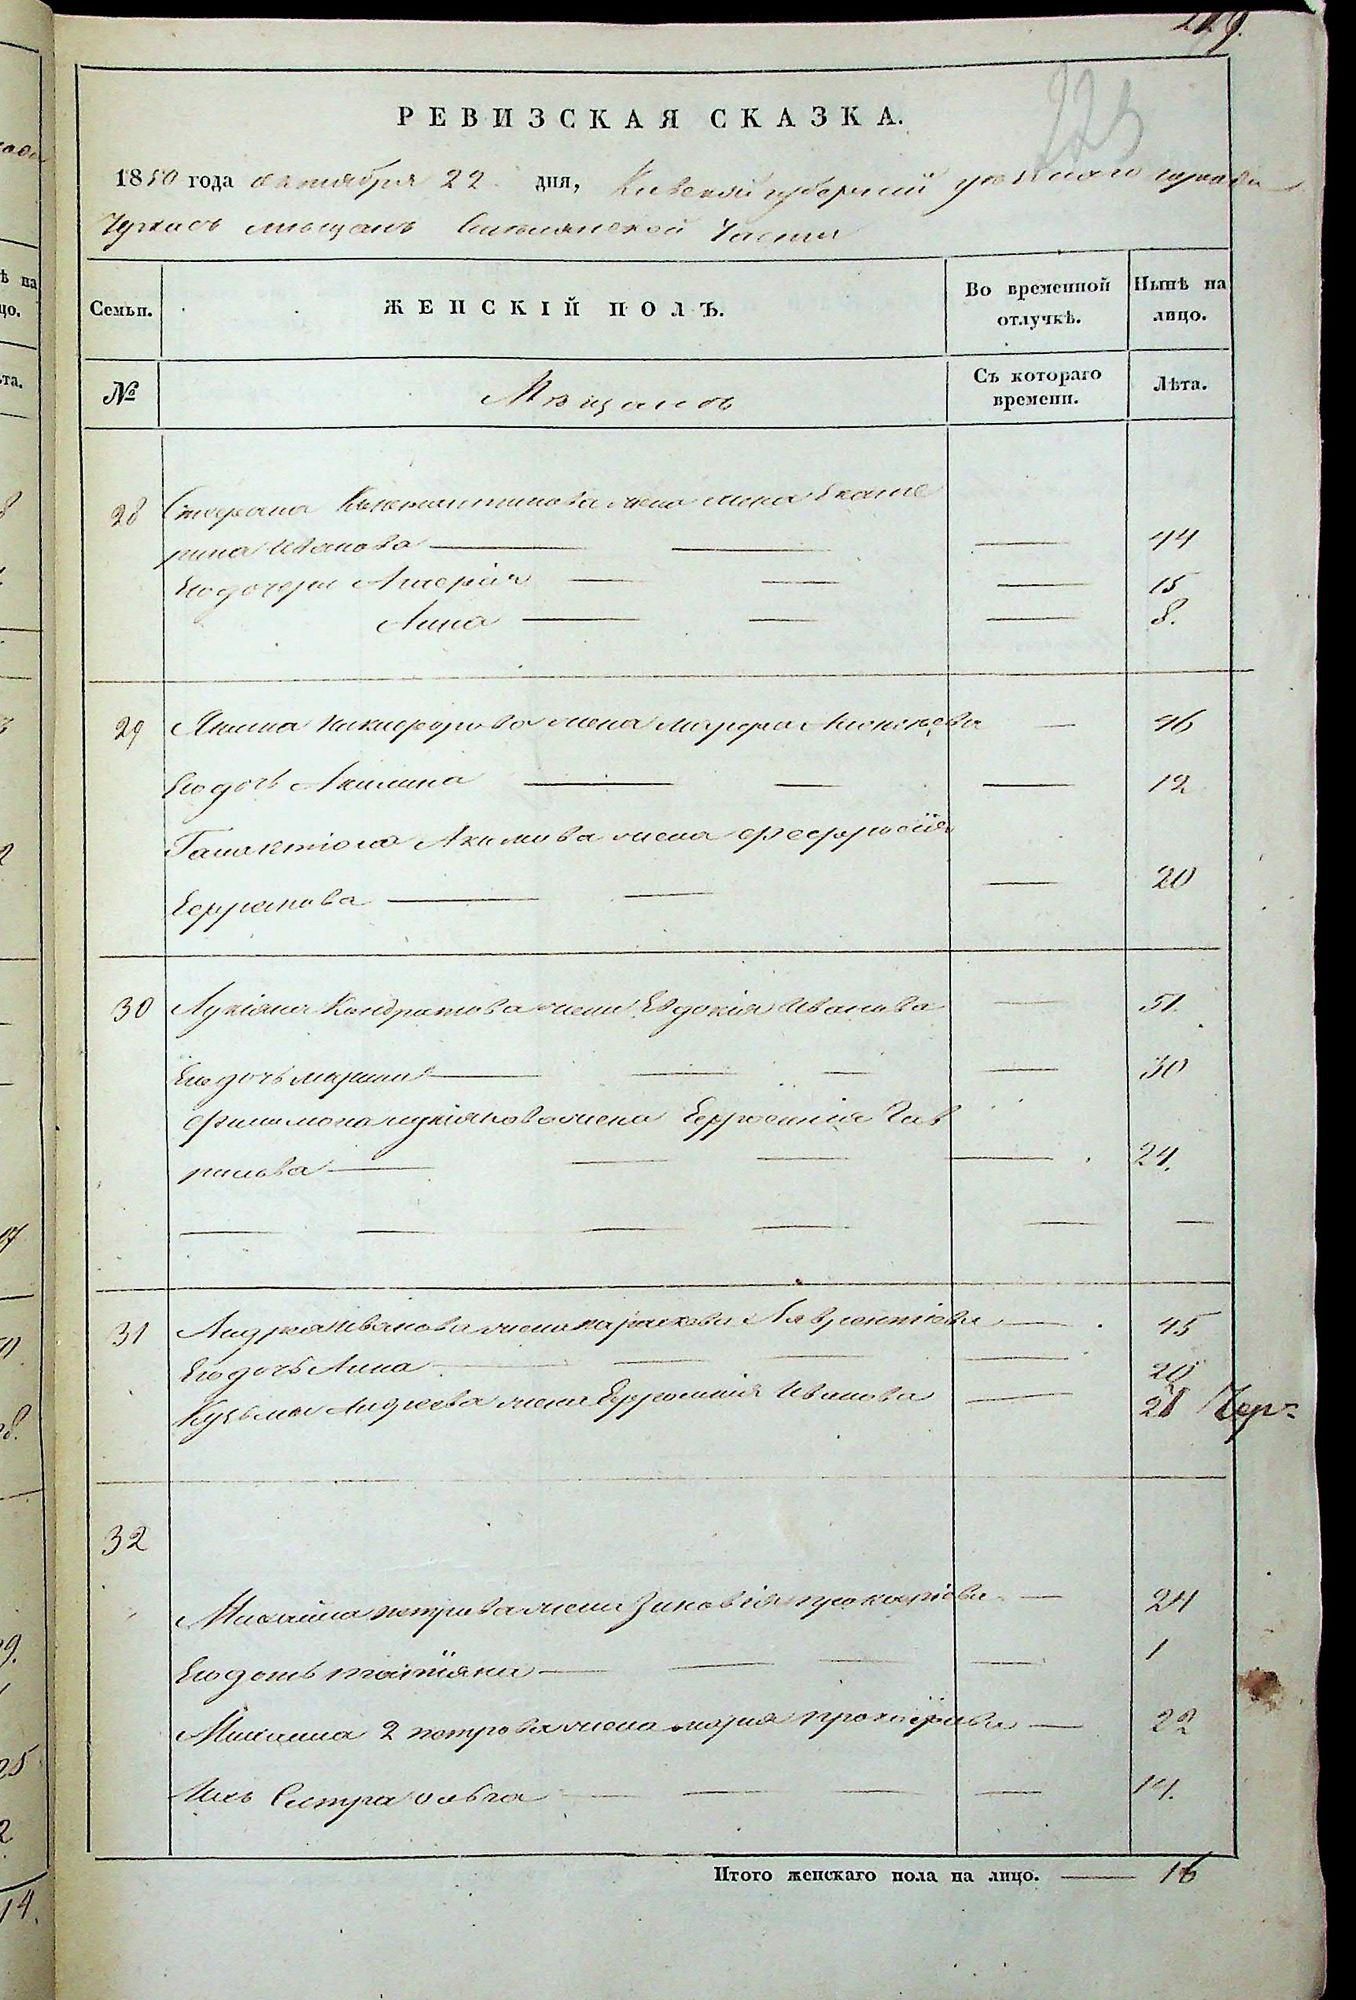 229.
225
РЕВИЗСКАЯ СКАЗКА.
1850 года октября 22 дня, Киевской губернии уезднаго города
Черкасъ мещанъ Смелянской Части
Семьи. ЖЕНСКІЙ ПОЛЪ. Во временной отлучкѣ. Нынѣ на лицо.
№ Мещанъ Съ котораго времени. Лѣта.
28 Стефана Константинова жена Екате
рина Иванова — — — 44
Его дочери Гликерія — — — 15
Анна — — — 8.
29 Якима Никифорова жена Марфа Алексеева — 46
Его дочь Акилина — — — 12
Галактіона Акимова жена Феофросія
Ефрамова — — — 20
30 Лукіяна Кондратова жена Евдокія Иванова — 51.
Его дочь Марина — — — — 30
Филимона Лукіянова жена Ефросинія Гав
рилова — — — — 24.
— — — — — —
31 Андрея Иванова жена Параскева Лаврентіева — 45
Его дочь Анна — — — — 20
Кузьмы Андреева жена Ефросинія Иванова — 28 Чер-
32
Михайла Петрова жена Зиновія Прокопіова — 24
Его дочь Татіяна — — — — 1
Михайла 2 Петрова жена Марія Прокофіева — 22
Ихъ Сестра Ольга — — — — 14.
Итого женскаго пола на лицо. — 16